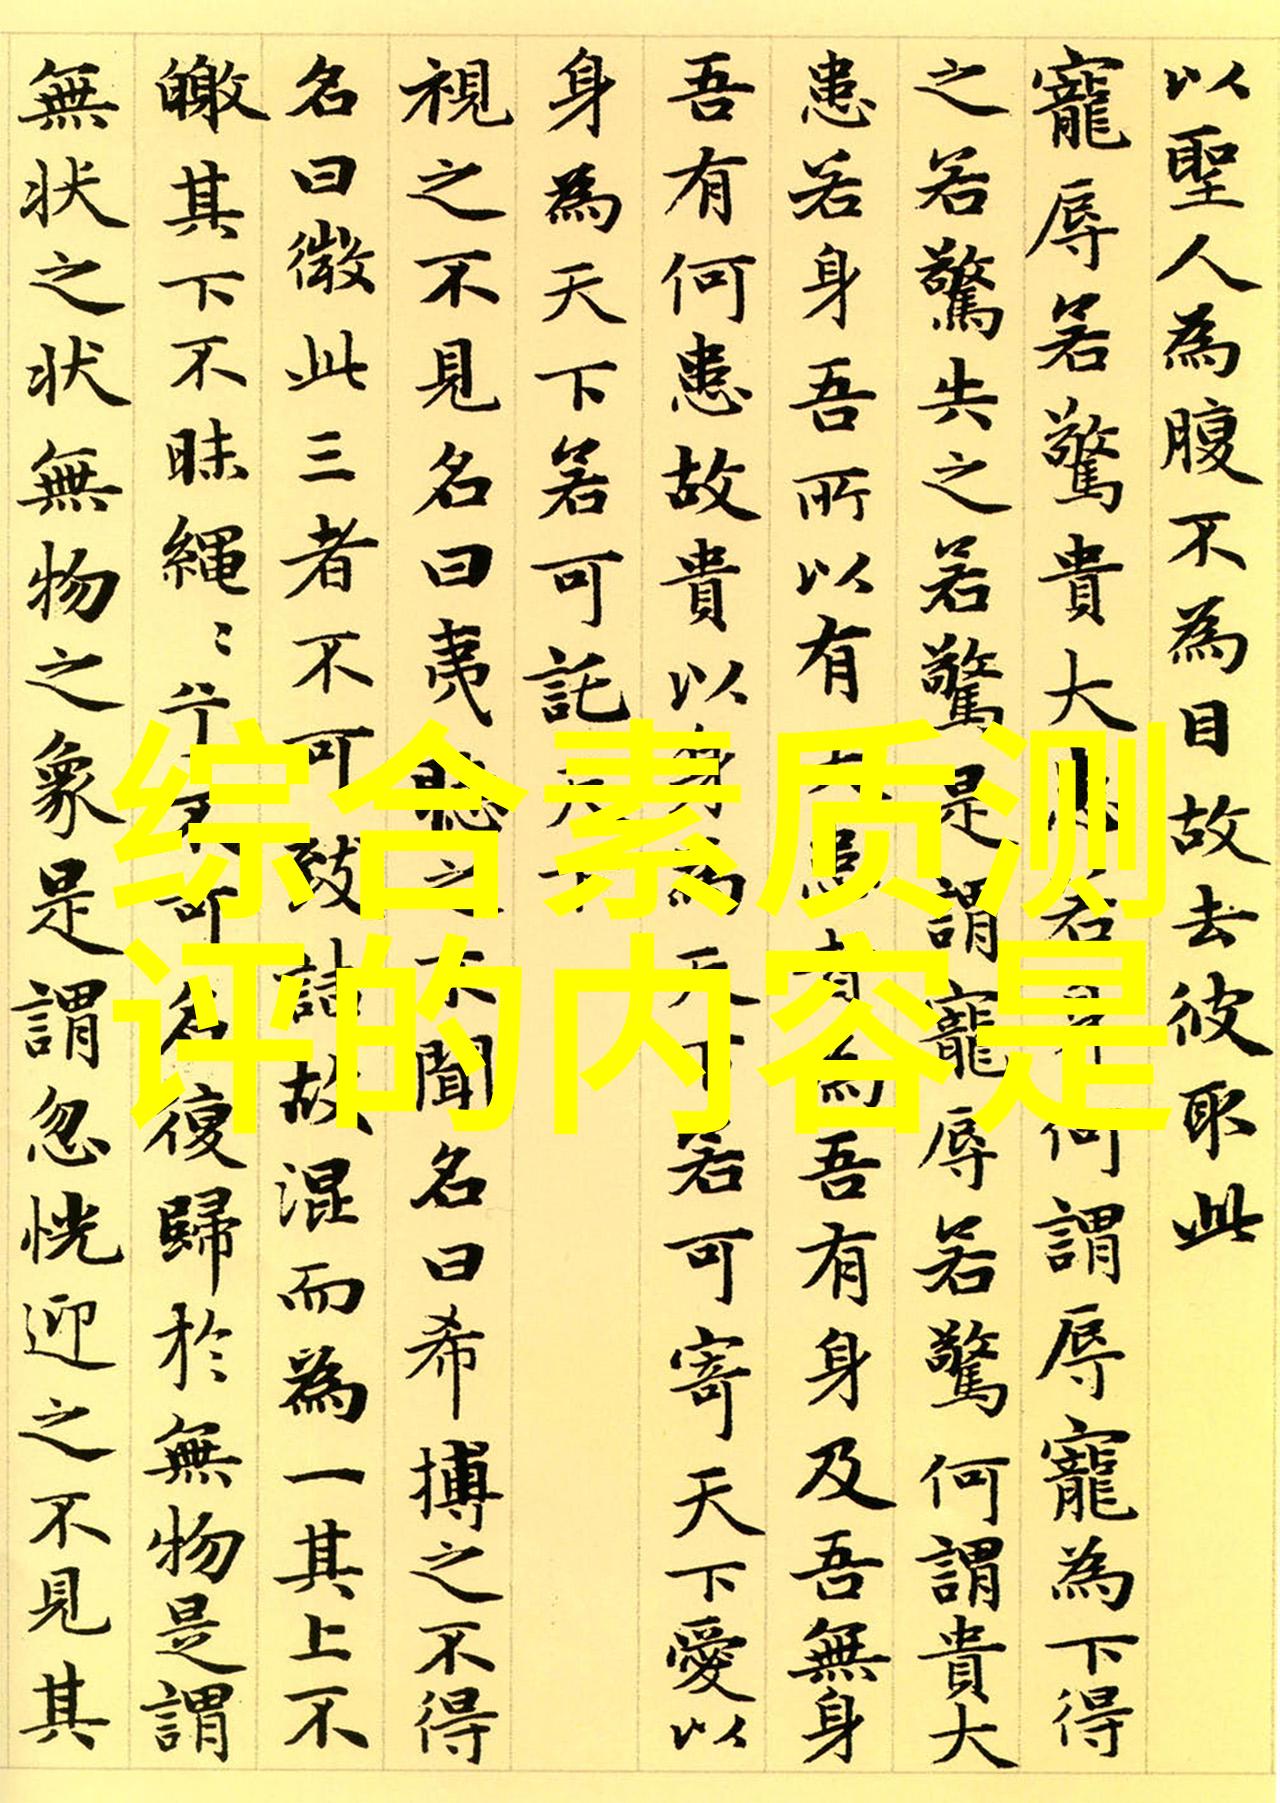 以聖人為腹不為目故去彼取此
寵辱若驚貴大患若身何謂辱寵為下得
之若驚失之若驚是謂寵辱若驚何謂貴大
患若身吾所以有大患者為吾有身及吾無身
吾有何患故貴以身為天下若可寄天下愛以
身為天下若可託天下
視之不見名曰夷聽之不聞名曰希搏之不得
名曰微此三者不可致詰故混而為一其上不
皦其下不昧繩〻兮不可名復歸於無物是謂
無状之状無物之象是謂忽恍迎之不見其
综合素质测
评的内容是